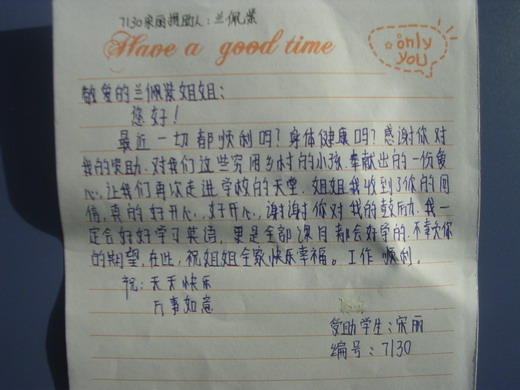 7130宋丽援助人:兰佩紫
Have a good time
only
you
敬爱的兰佩紫姐姐:
您好!
最近一切都顺利吗?身体健康吗?感谢你对
我的资助.对我们这些穷困乡村的小孩.奉献出的一份爱
心,让我们再次走进学校的天堂.姐姐我收到了你的回
信,真的好开心,好开心,谢谢你对我的鼓励.我一
定会好好学习英语,更是全部课目都会好学的.不辜欠你
的期望,在此,祝姐姐全家快乐幸福。工作顺利.
祝:天天快乐
万事如意
受助学生:宋丽
编号:7130